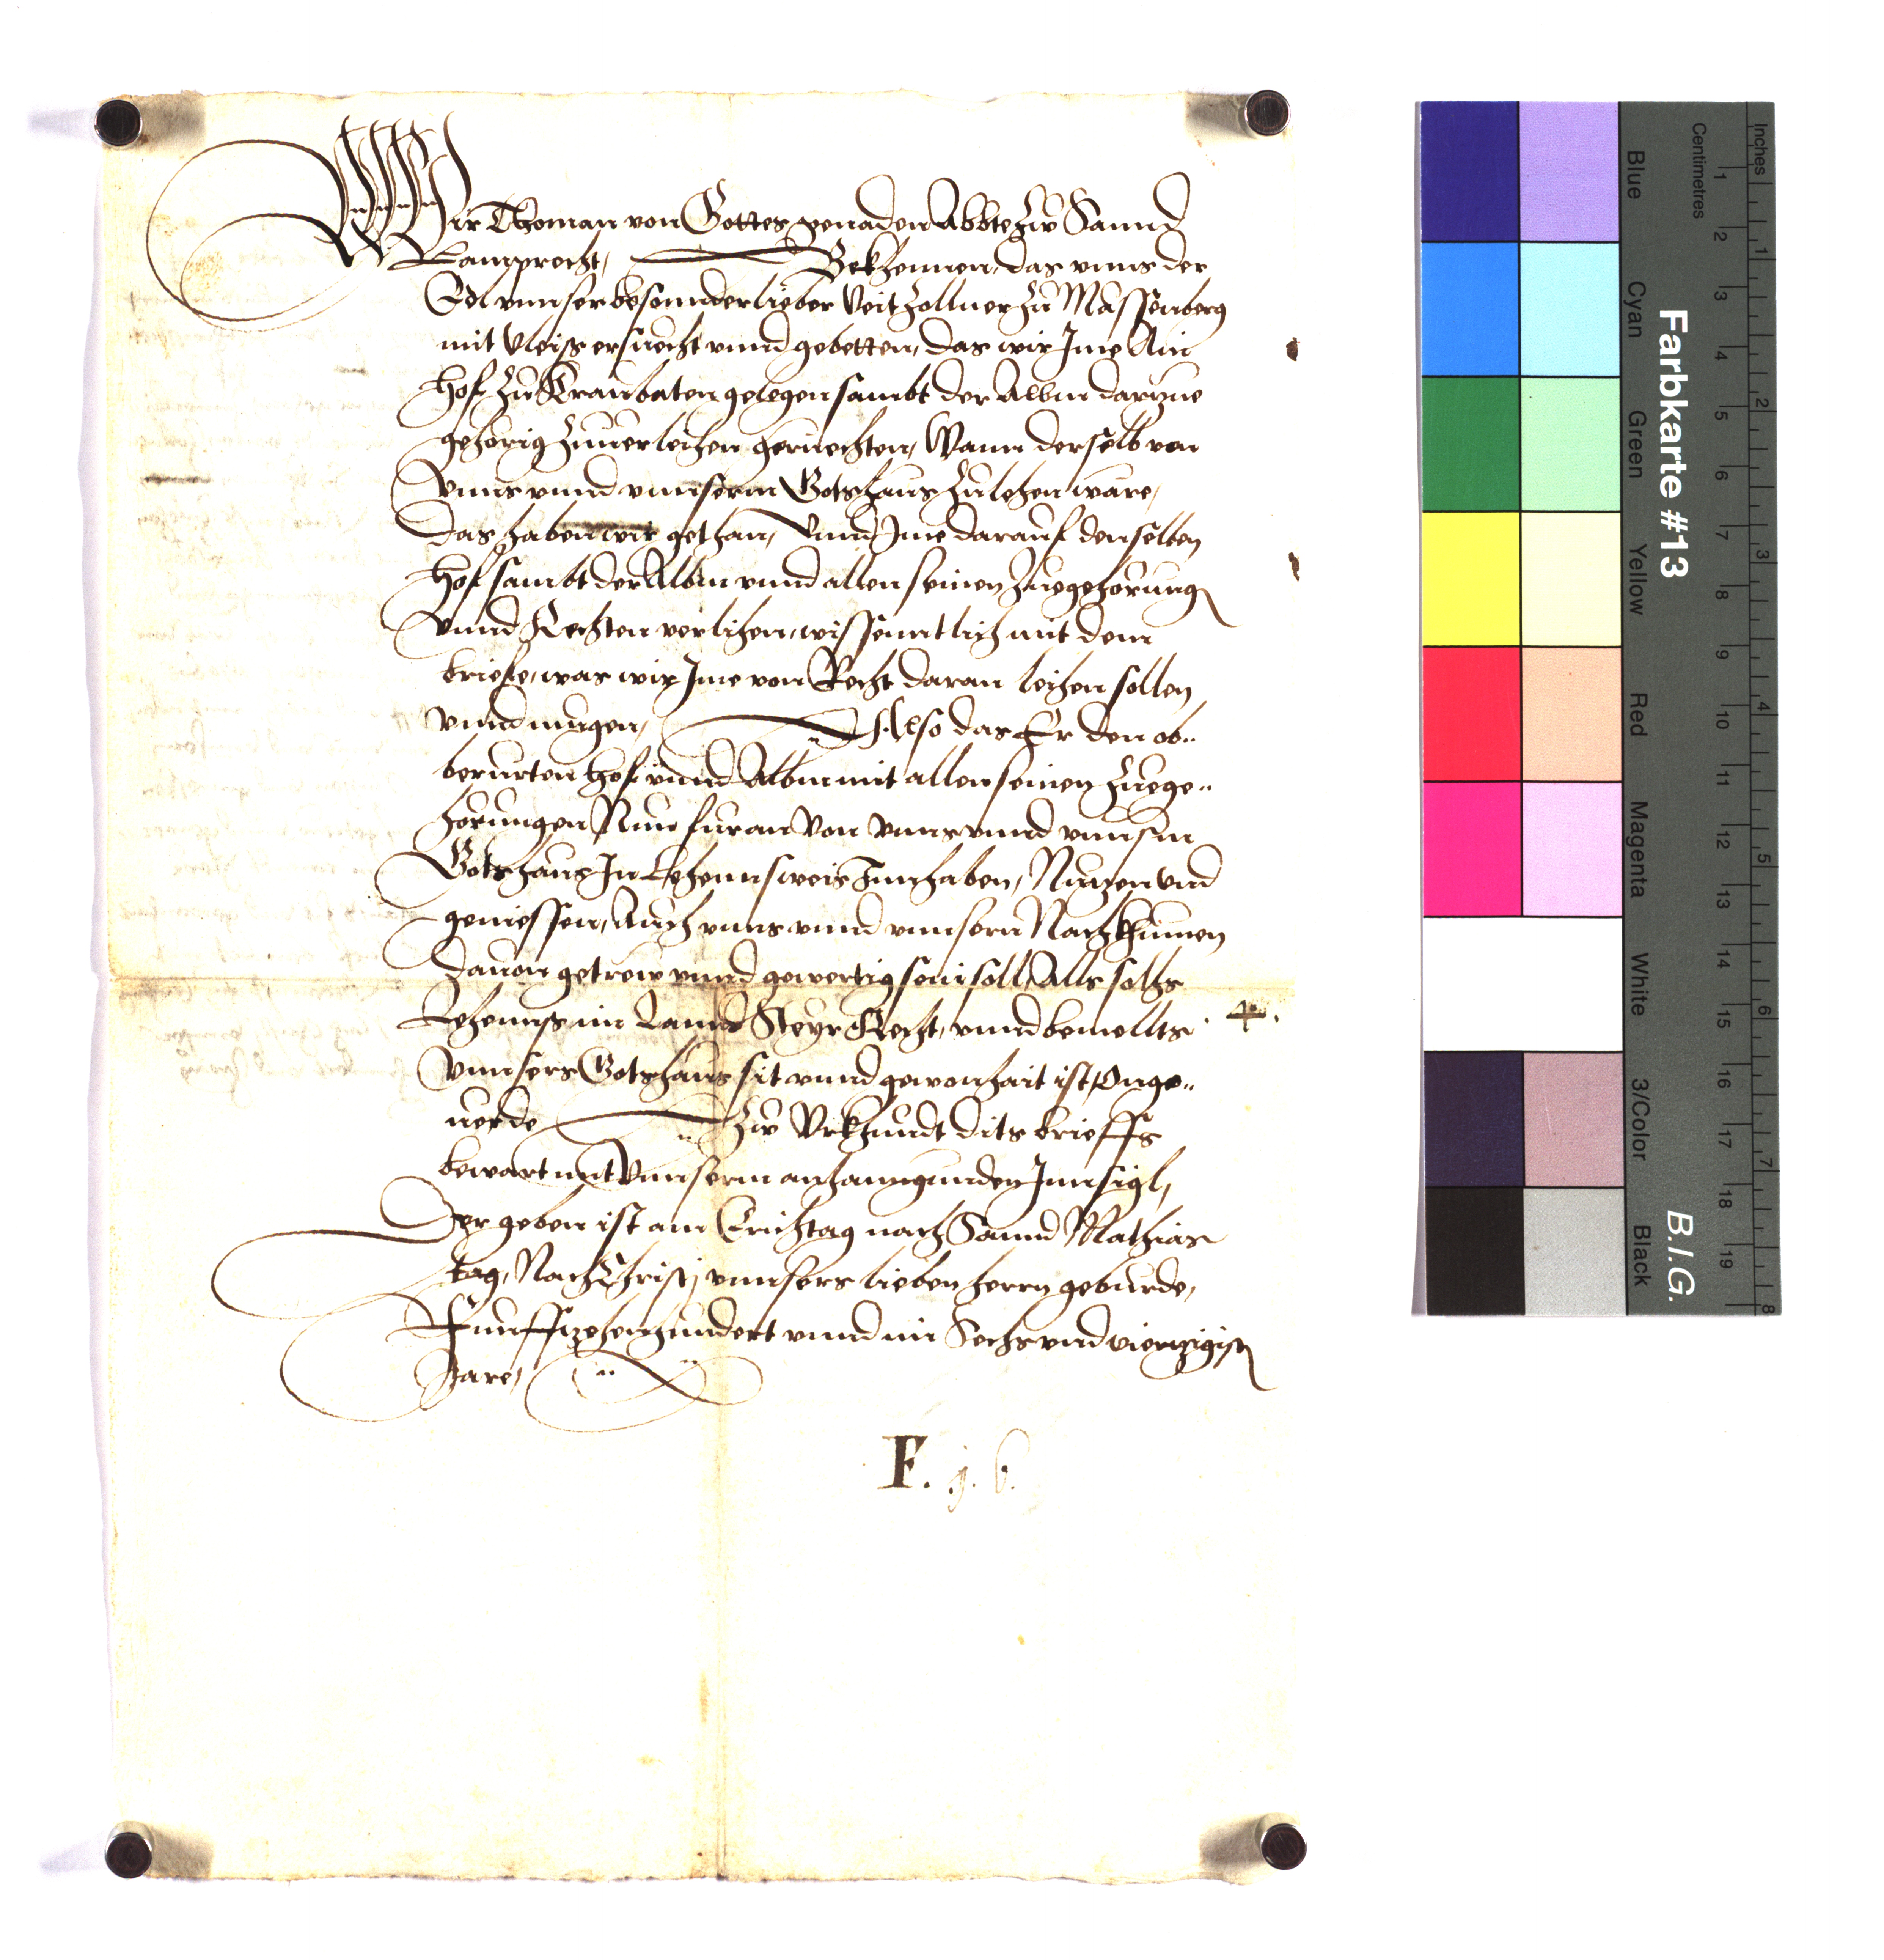 Wir Thoman von Gottes genaden Abbte zw Sannd
Lamprecht, Bekhennen, das vnns der
Edl vnnser besonnder lieber Veit Zollner zu Massenberg
mit vleiss ersuecht vnnd gebetten, das wir Ime Ain
Hof zu Kraubaten gelegen sambt der Albm darzue
gehorig zuuerleihen geruechten, Wann derselb von
vnns vnnd vnnserm Gotshaus zu lehen ware,
das haben wir gethan, Vnnd Ime darauf denselben
Hof sambt der Albm vnnd allen seinen zuegehorung
vnnd Rechten verlihen, wissenntlich mit dem
briefe, was wir Ime von Recht daran leihen sollen
vnnd mugen, Also das Er den ob..
berurten Hof vnnd Albm mit allen seinen zuege..
horungen Nun furan Von vnns vnnd vnnserm
Gotshaus In Lehennsweis Innhaben, Nutzen vnd
geniessen, Auch vnns vnnd vnnsern Nachkhumen
dauon getrew vnnd gewertig sein soll, Alls solhs
Lehennss im Lannd Steyr Recht, vnnd bemellts
vnnsers Gotshaus sit vnnd gewonhait ist, Onge..
uerde Zw Vrkhundt dits brieffs
bewart mit Vnnserm anhanngunden Innsigl,
Der geben ist am Erichtag nach Sannd Mathias
tag, Nach Christj vnnsers lieben herrn geburde,
Funffzehenhundert vnnd im Sechs vnd vierzigisten
Jare,
F. j. 6.
Farbkarte #13
B.I.G.
Inches 1 2 3 4 5 6 7 8
Centimetres 1 2 3 4 5 6 7 8 9 10 11 12 13 14 15 16 17 18 19
Blue Cyan Green Yellow Red Magenta White 3/Color Black